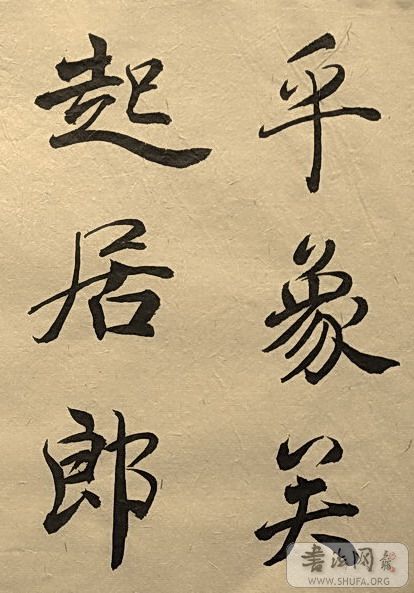 乎象矣
起居郎
書法网
WWW.SHUFA.ORG